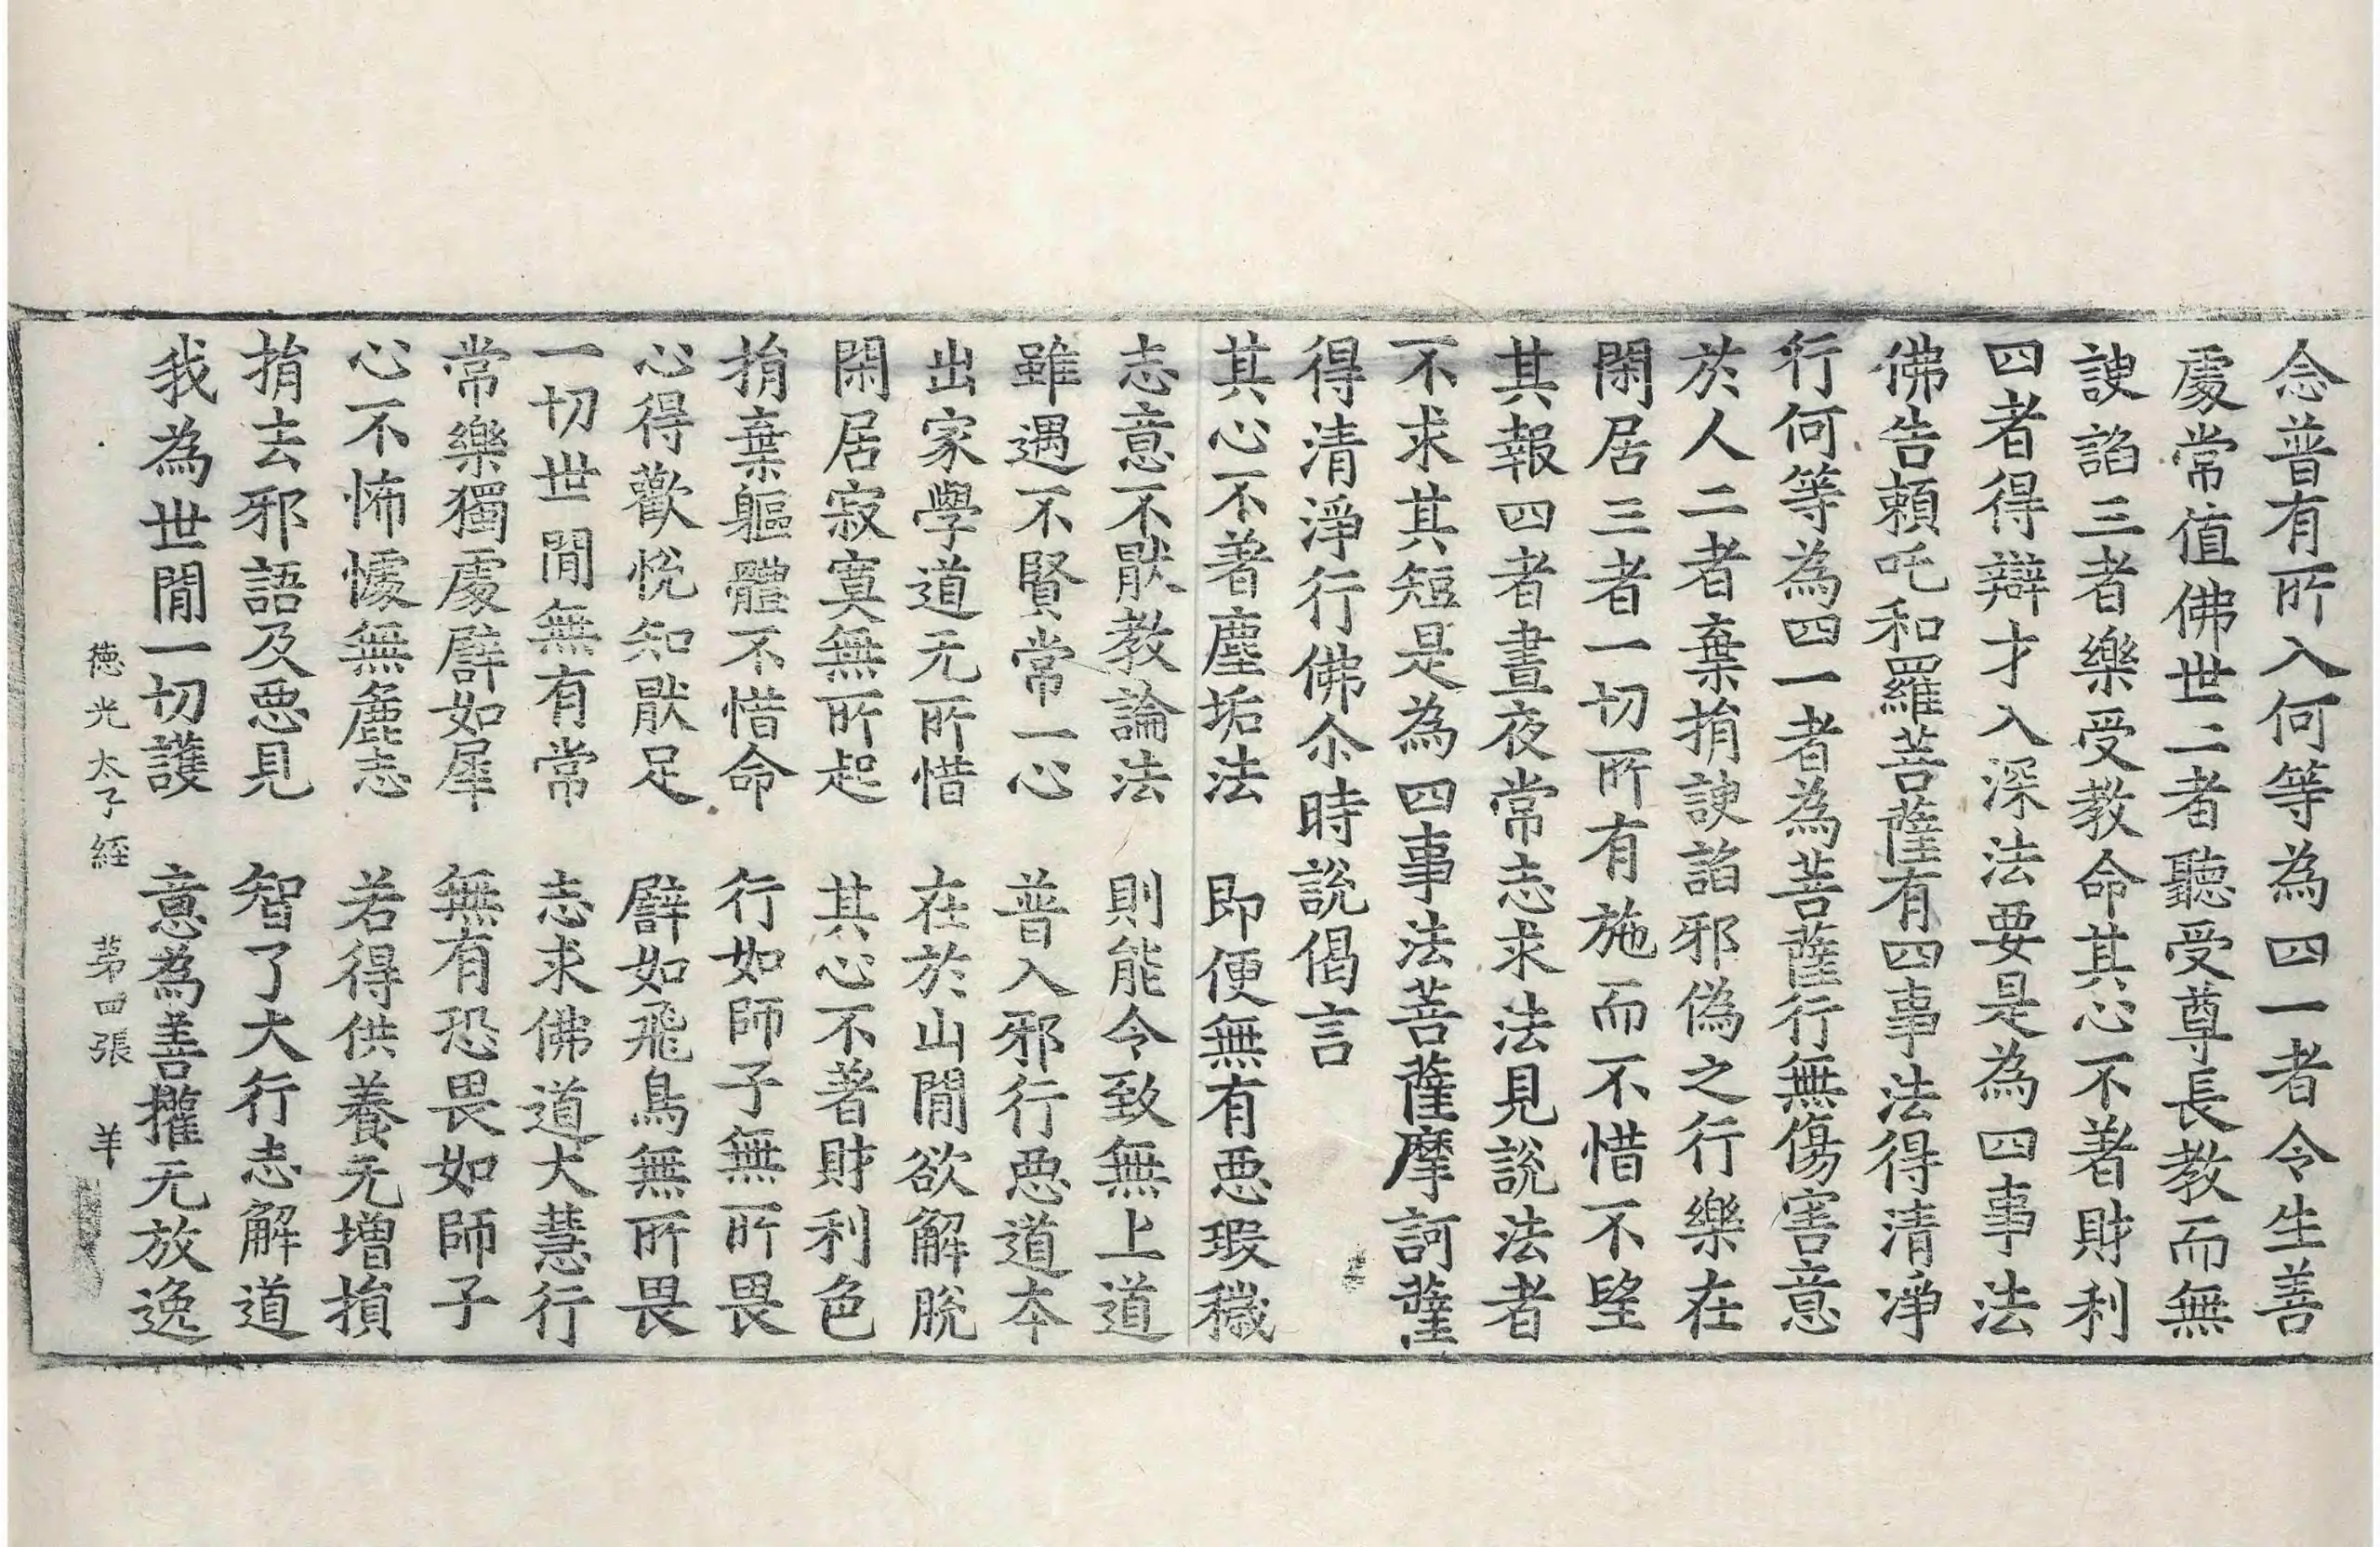 念普有所入何等為四一者令生善
處常值佛世二者聽受尊長教而無
諛諂三者樂受教命其心不著財利
四者得辯才入深法要是為四事法
佛告賴吒和羅菩薩有四事法得清淨
行何等為四一者為菩薩行無傷害意
於人二者棄捐諛諂邪偽之行樂在
閑居三者一切所有施而不惜不望
其報四者晝夜常志求法見說法者
不求其短是為四事法菩薩摩訶薩
得清淨行佛尒時說偈言
其心不著塵垢法　即便無有惡瑕穢
志意不猒教論法　則能令致無上道
雖遇不賢常一心　普入邪行惡道本
出家學道无所惜　在於山閒欲解脫
閑居寂寞無所起　其心不著財利色
捐棄軀體不惜命　行如師子無所畏
心得歡悅知猒足　譬如飛鳥無所畏
一切世閒無有常　志求佛道大慧行
常樂獨處譬如犀　無有恐畏如師子
心不怖懅無麁志　若得供養无增損
捐去邪語及惡見　智了大行志解道
我為世閒一切護　意為善權无放逸
德光太子經　第四張　羊